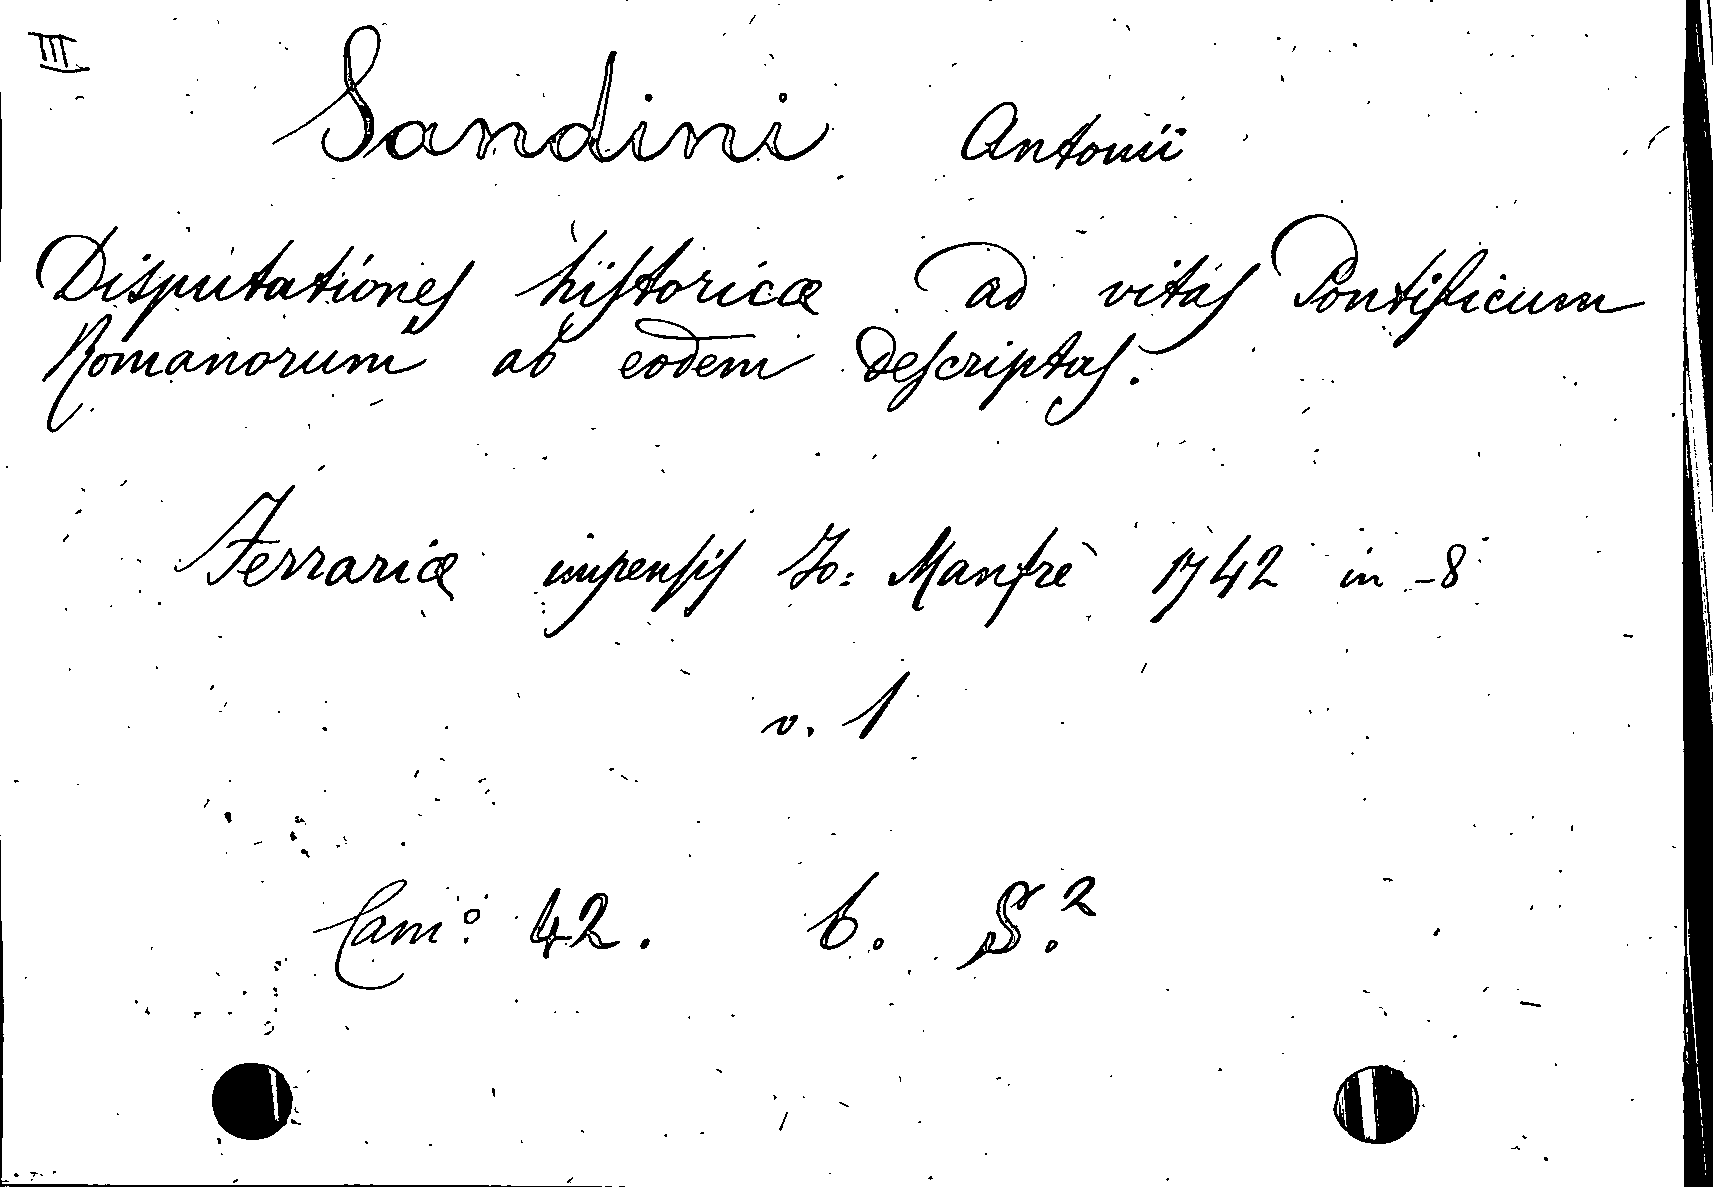 III
Sandini Antonii
Disputationes historicæ ad vitas Pontificum
Romanorum ab eodem descriptas.
Ferrariæ impensis Jo: Manfrè 1742 in-8
v. 1
Cam: 42. b. S.2